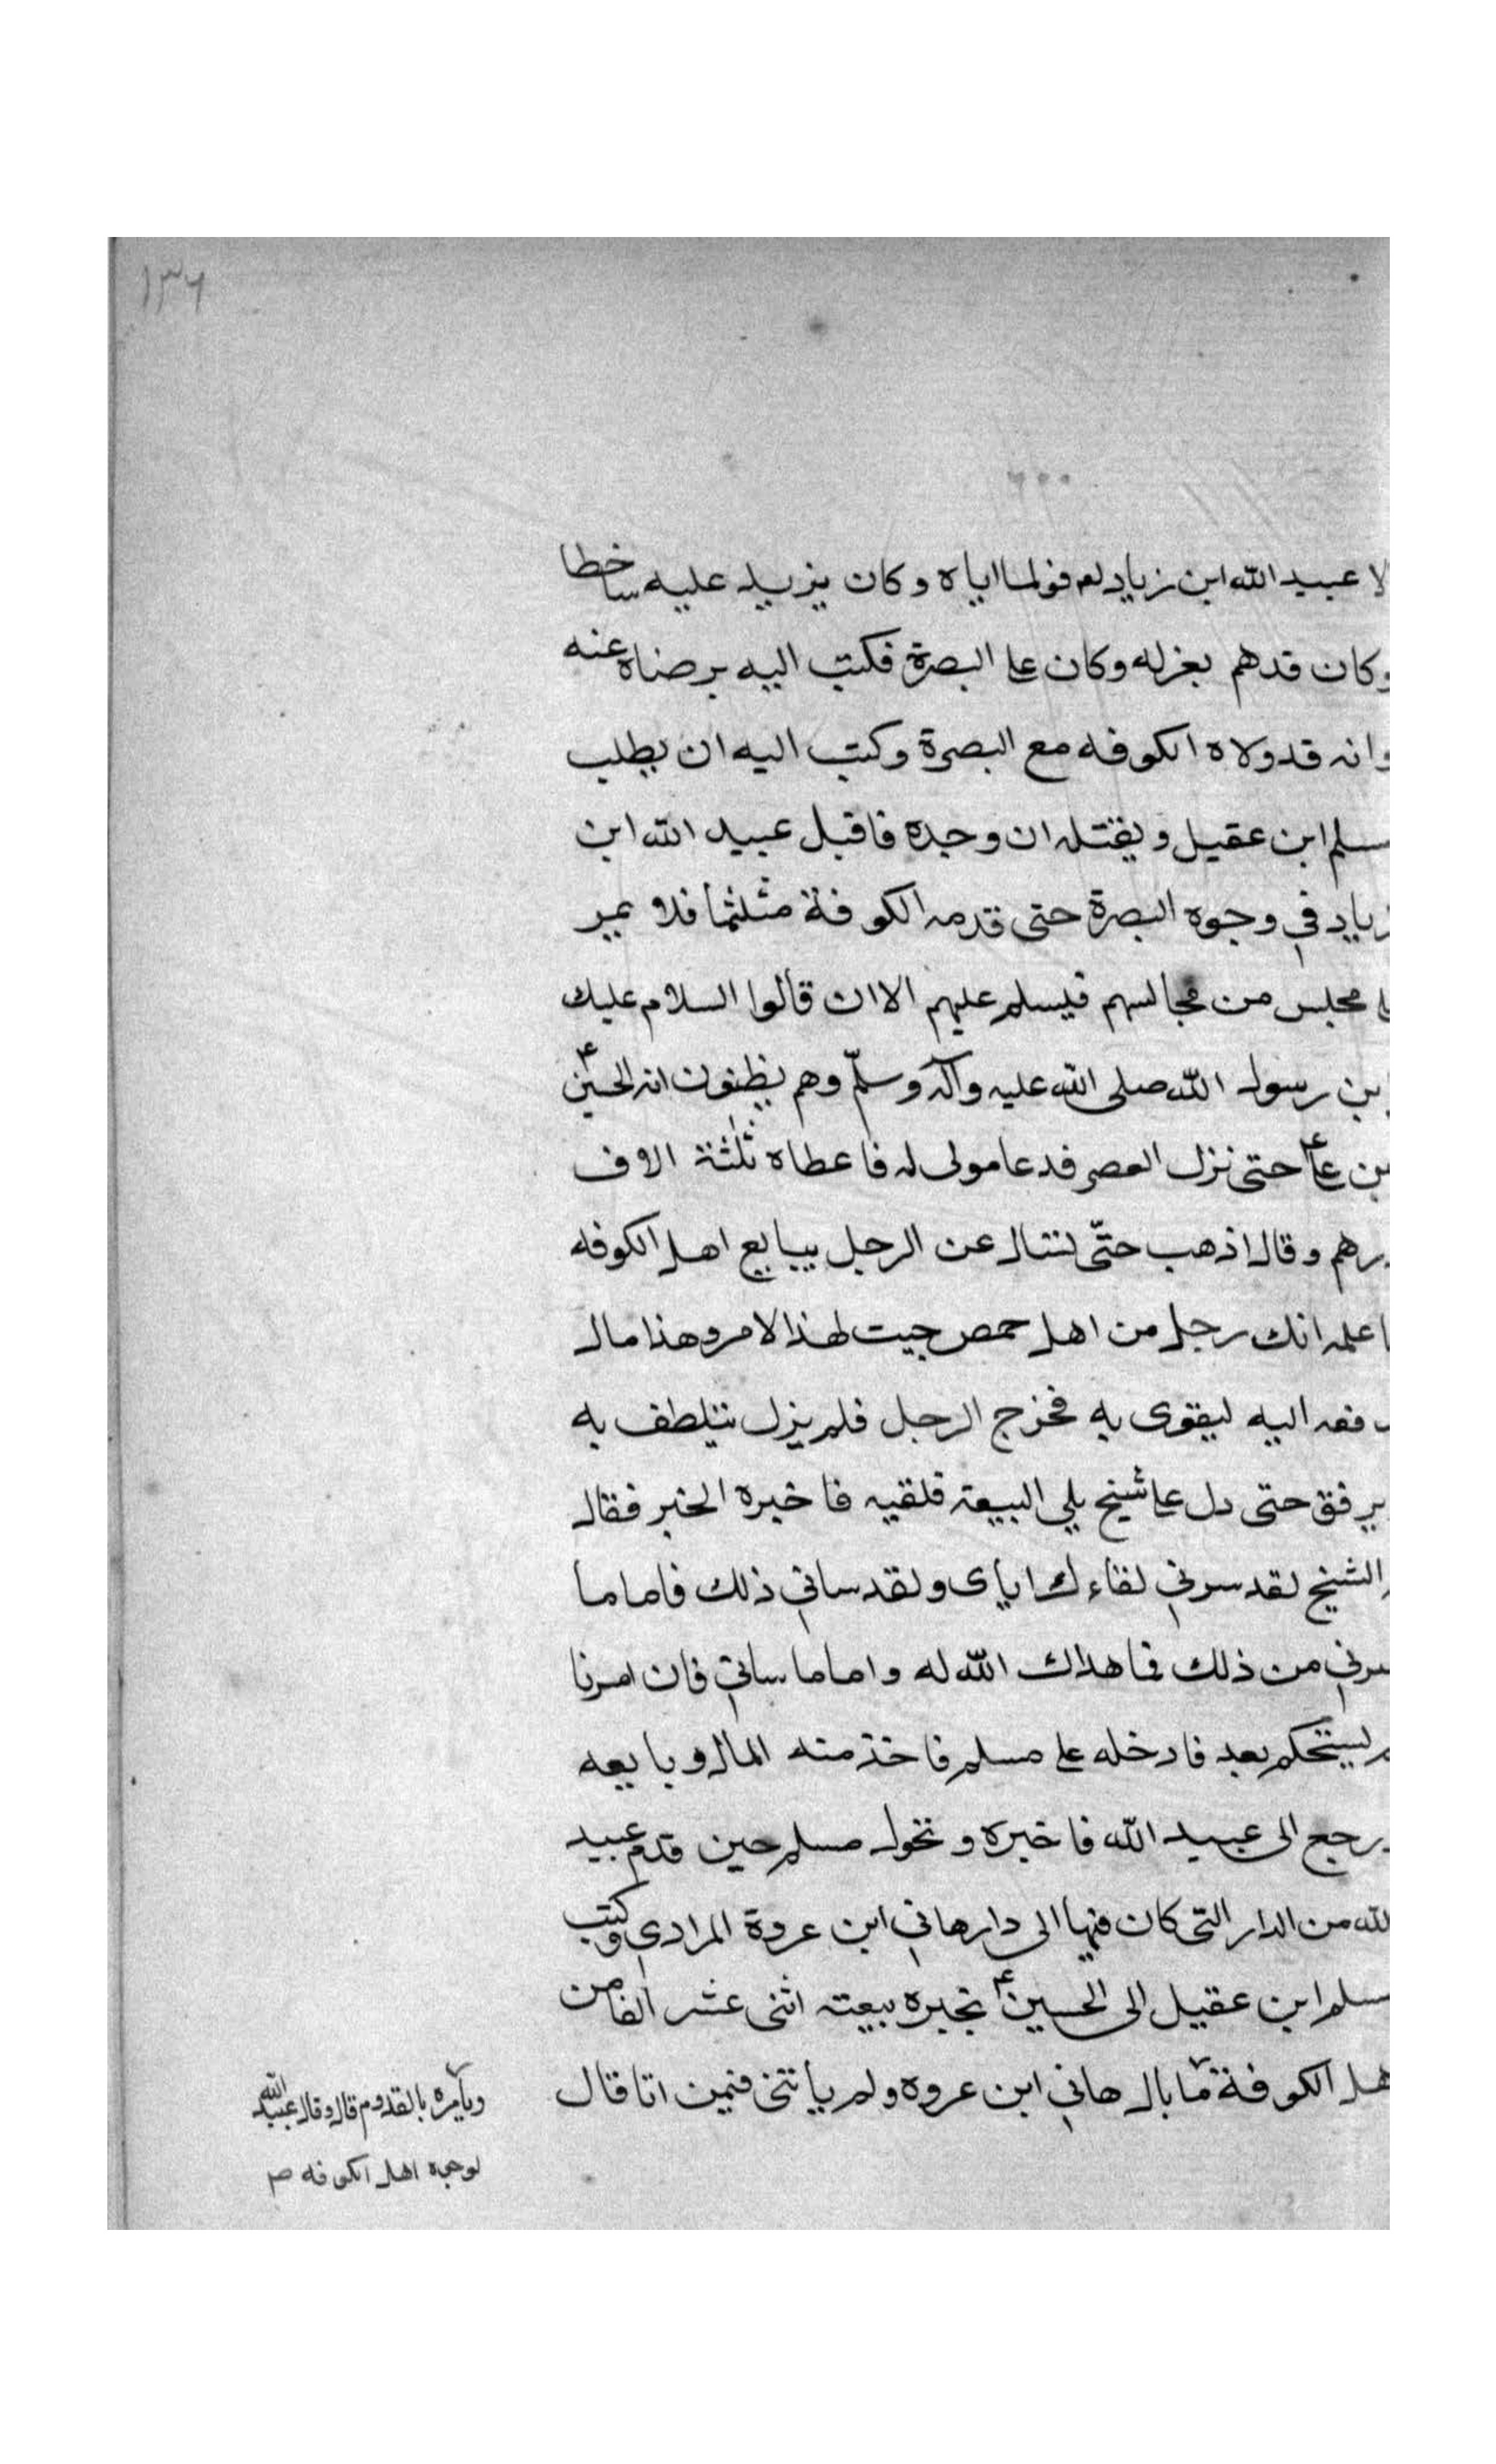 ١٣٦
لا عبيد الله ابن زياد لعم فولها اياه وكان يزيد عليه ساخطا
وكان قدهم بعزله وكان على البصرة فكتب اليه برضاه عنه
وانه قد ولاه الكوفه مع البصرة وكتب اليه ان يطلب
مسلم ابن عقيل ويقتله ان وجده فاقبل عبيد الله ابن
زياد في وجوه البصرة حتى قدمه الكوفة متلثما فلا يمر
على مجلس من مجالسهم فيسلم عليهم الا ان قالوا السلام عليك
ابن رسول الله صلى الله عليه وآله وسلّم وهم يظنون انه الحسين ع
بن على ع حتى نزل العصر فدعا مولى له فاعطاه ثلثة الاف
درهم وقال اذهب حتّى لتسال عن الرجل يبايع اهل الكوفه
اعلمه انك رجل من اهل حمص جيت لهذا لامر وهذا مال
دفعه اليه ليقوى به فخرج الرجل فلم يزل يتلطف به
يرفق حتى دل على شيخ يلي البيعة فلقيه فاخبره الخبر فقال
الشيخ لقد سرني لقاءك اياى ولقد ساني ذلك فاما ما
سرني من ذلك فما هداك الله له واما ما ساني فان امرنا
لم يستحكم بعد فادخله على مسلم فاخذ منه المال وبايعه
ورجع الى عبيد الله فاخبره وتحول مسلم حين قدم عبيد
الله من الدار التى كان فيها الى دار هاني ابن عروة المرادي وكتب
مسلم ابن عقيل الى الحسين ع يخبره ببيعته اثنى عشر الفا من
اهل الكوفة ما بال هاني ابن عروه ولم ياتنى فيمن اتا قال
ويأمره بالقدوم قال وقال عبيد الله
لوجوه اهل الكوفه صح